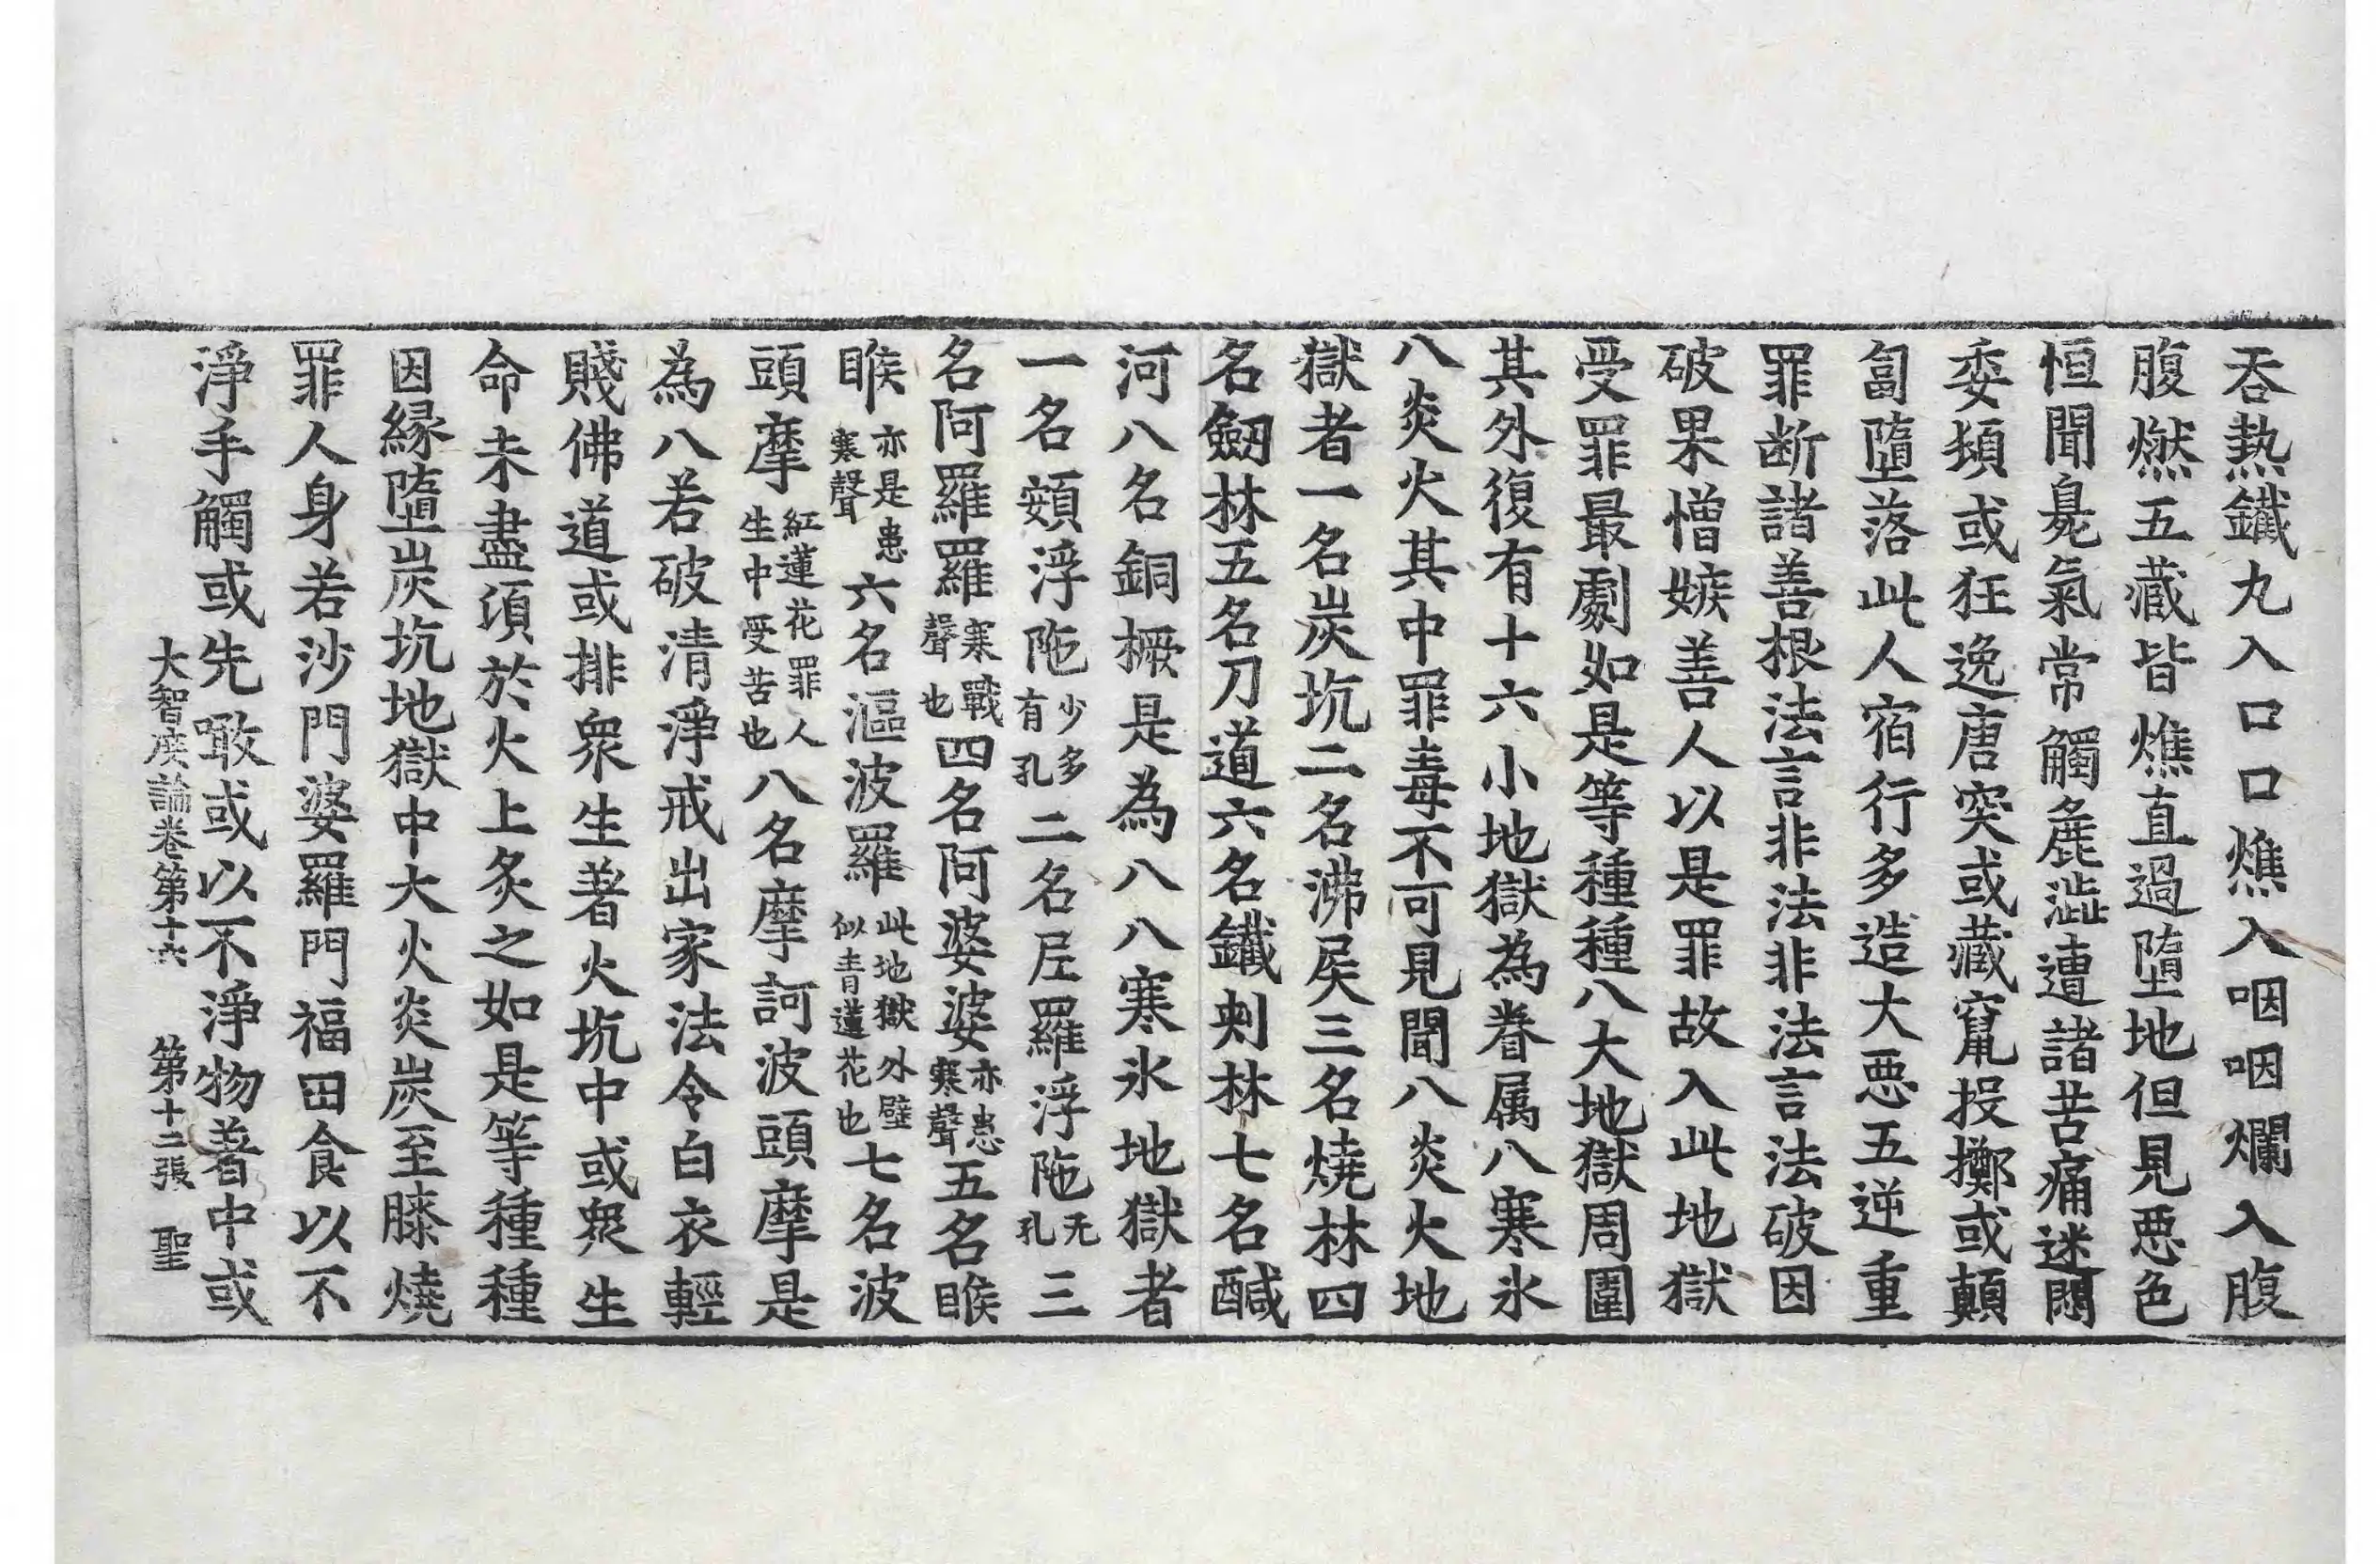 吞熱鐵丸入口口燋入咽咽爛入腹
腹燃五藏皆燋直過墮地但見惡色
恒聞臭氣常觸麁澁遭諸苦痛迷悶
委頓或狂逸唐突或藏竄投擲或顛
匐墮落此人宿行多造大惡五逆重
罪断諸善根法言非法非法言法破因
破果憎嫉善人以是罪故入此地獄
受罪最劇如是等種種八大地獄周圍
其外復有十六小地獄為眷属八寒氷
八炎火其中罪毒不可見聞八炎火地
獄者一名炭坑二名沸屎三名燒林四
名劒林五名刀道六名鐵刺林七名醎
河八名銅橛是為八八寒氷地獄者
一名頞浮陁少多有孔二名尼羅浮陁无孔三
名阿羅羅寒戰聲也四名阿婆婆亦患寒聲五名睺
睺亦是患寒聲六名漚波羅此地獄外壁似青蓮花也七名波
頭摩紅蓮花罪人生中受苦也八名摩訶波頭摩是
為八若破清淨戒出家法令白衣輕
賤佛道或排衆生著火坑中或衆生
命未盡湏於火上炙之如是等種種
因縁墮炭坑地獄中大火炎炭至膝燒
罪人身若沙門婆羅門福田食以不
淨手觸或先噉或以不淨物著中或
大智度論卷第十六　第十二張　聖